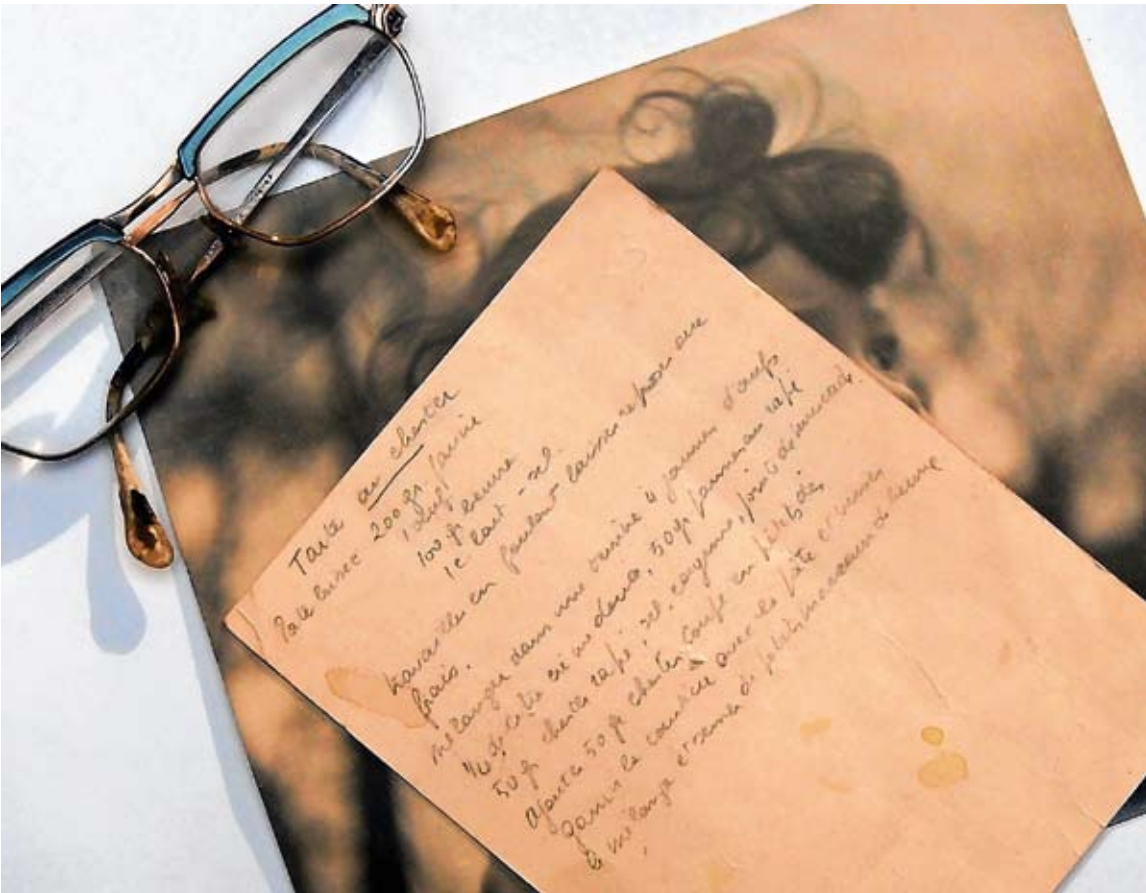 Tarte au chester
Pate brisée 200 gr. farine
1 œuf
100 gr beurre
1 c lait - sel.
travailler en foulant laisser reposer au
frais.
mélanger dans une terrine 4 jaunes d'œufs
1/4 de litre crème double, 50 gr parmesan rapé
50 gr chester rapé, sel, cayenne, point de muscade.
ajouter 50 gr chester coupé en petits dés
garnir la tourtière avec la pâte et verser
le mélange et semer de petits morceaux de beurre